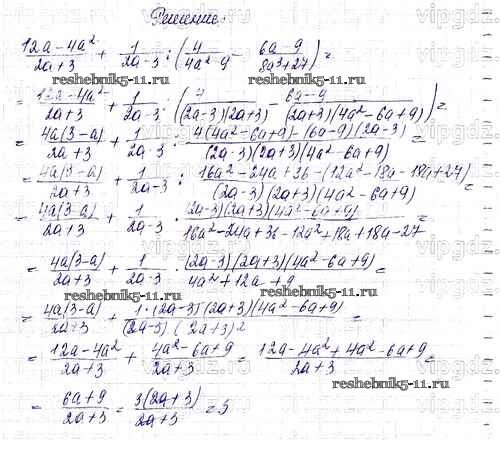 Решение
(12a-4a²)/(2a+3) + 1/(2a-3) : (4/(4a²-9) - (6a-9)/(8a³+27)) =
reshebnik5-11.ru reshebnik5-11.ru
= (12a-4a²)/(2a+3) + 1/(2a-3) : (4/((2a-3)(2a+3)) - (6a-9)/((2a+3)(4a²-6a+9))) =
= (4a(3-a))/(2a+3) + 1/(2a-3) : (4(4a²-6a+9)-(6a-9)(2a-3))/((2a-3)(2a+3)(4a²-6a+9)) =
= (4a(3-a))/(2a+3) + 1/(2a-3) : (16a²-24a+36-(12a²-18a-18a+27))/((2a-3)(2a+3)(4a²-6a+9)) =
= (4a(3-a))/(2a+3) + 1/(2a-3) · ((2a-3)(2a+3)(4a²-6a+9))/(16a²-24a+36-12a²+18a+18a-27) =
= (4a(3-a))/(2a+3) + 1/(2a-3) · ((2a-3)(2a+3)(4a²-6a+9))/(4a²+12a+9) =
reshebnik5-11.ru reshebnik5-11.ru
= (4a(3-a))/(2a+3) + (1·(2a-3)(2a+3)(4a²-6a+9))/((2a-3)(2a+3)²) =
= (12a-4a²)/(2a+3) + (4a²-6a+9)/(2a+3) = (12a-4a²+4a²-6a+9)/(2a+3) =
reshebnik5-11.ru
= (6a+9)/(2a+3) = (3(2a+3))/(2a+3) = 3
vipgdz.ru